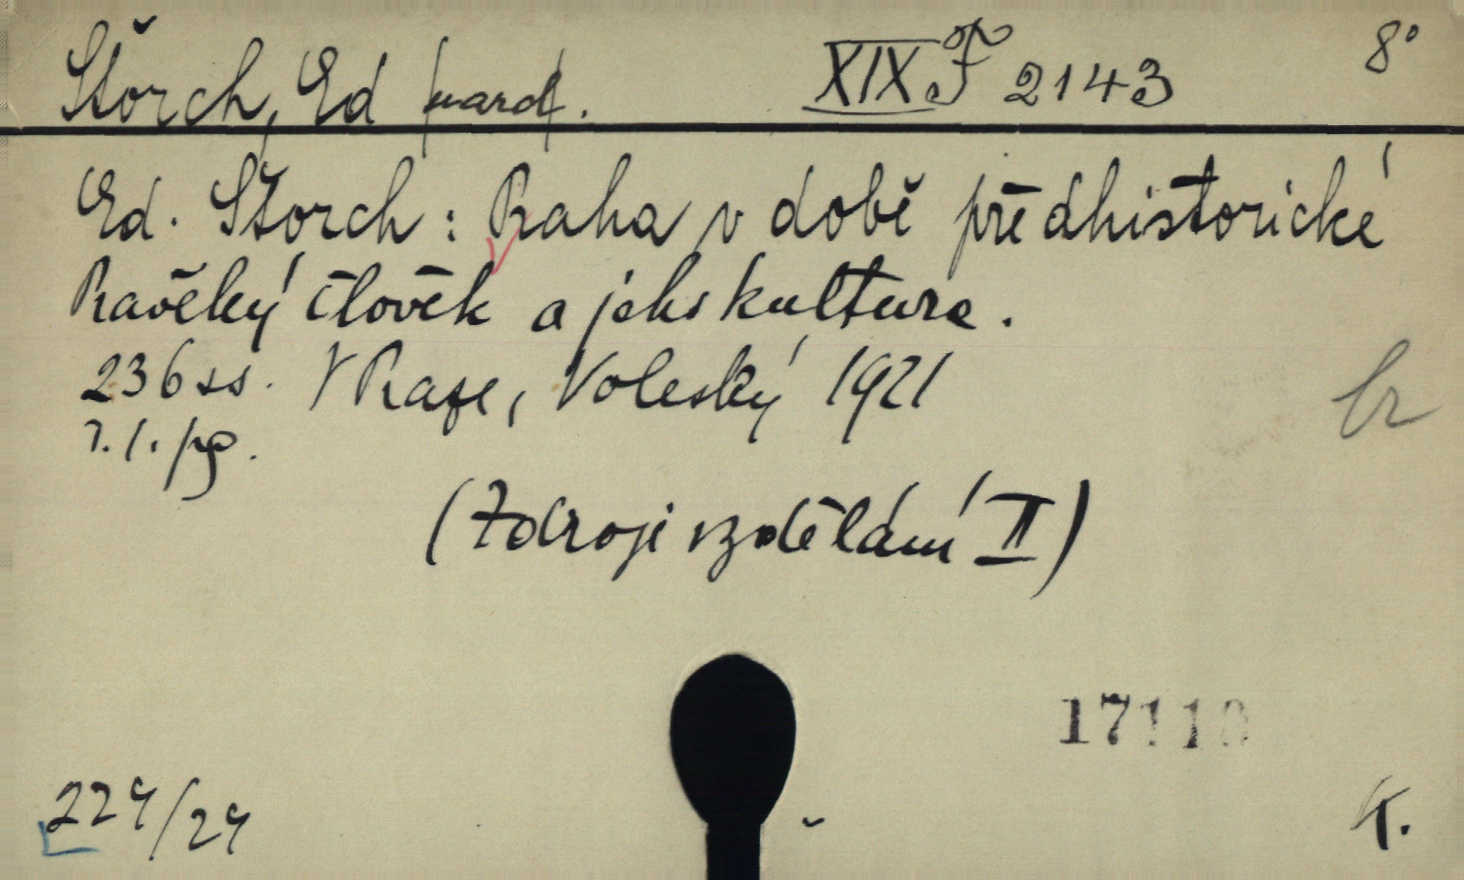 Štorch, Ed (uard).
XIX F 2143
8°
Ed. Štorch: Praha v době předhistorické
Pravěký člověk a jeho kultura.
236 ss. V Praze, Voleský 1921
(Zdroje vzdělání II)
17110
224/24